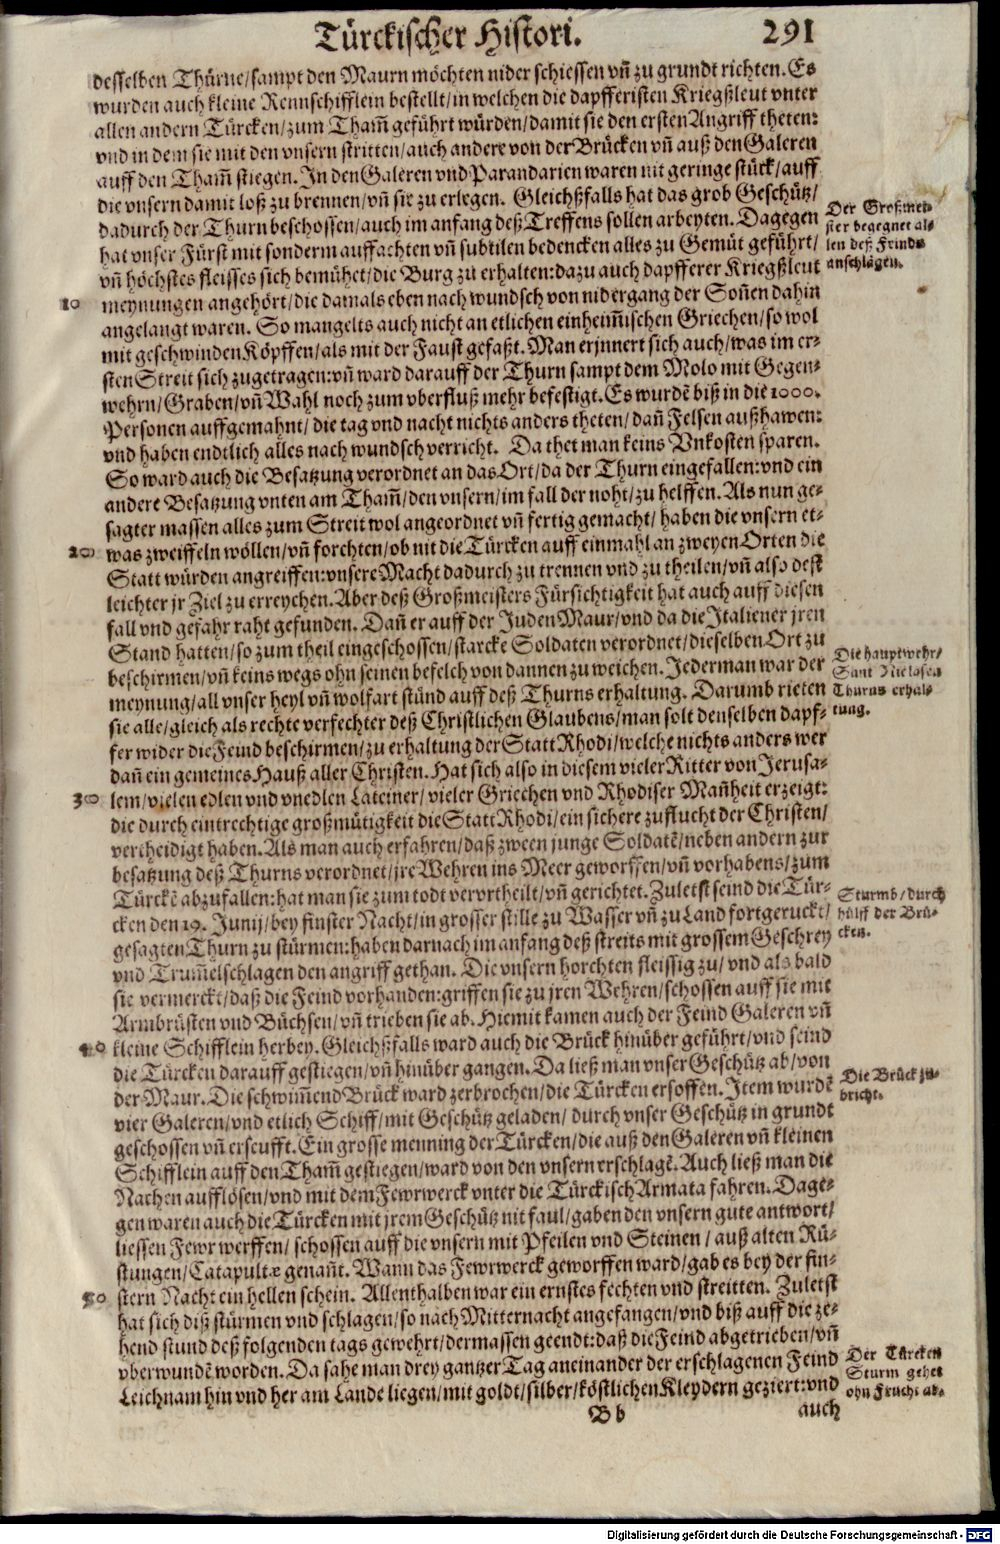 Türckischer Histori. 291
desselben Thürne/sampt den Maurn möchten nider schiessen vn̄ zu grundt richten. Es
wurden auch kleine Rennschifflein bestellt/in welchen die dapfferisten Kriegßleut vnter
allen andern Türcken/zum Tham̄ geführt würden/damit sie den ersten Angriff theten:
vnd in dem sie mit den vnsern stritten/auch andere von der Brücken vn̄ auß den Galeren
auff den Tham̄ stiegen. In den Galeren vnd Parandarien waren nit geringe stück/auff
die vnsern damit loß zu brennen/vn̄ sie zu erlegen. Gleichßfalls hat das grob Geschütz/
dadurch der Thurn beschossen/auch im anfang deß Treffens sollen arbeyten. Dagegen
hat vnser Fürst mit sonderm auffachten vn̄ subtilen bedencken alles zu Gemüt geführt/
vn̄ höchstes fleisses sich bemühet/die Burg zu erhalten: dazu auch dapfferer Kriegßleut
meynungen angehört/die damals eben nach wundsch von nidergang der Soñen dahin
angelangt waren. So mangelts auch nicht an etlichen einheim̄ischen Griechen/so wol
mit geschwinden Köpffen/als mit der Faust gefaßt. Man erjnnert sich auch/was im er-
sten Streit sich zugetragen: vn̄ ward darauff der Thurn sampt dem Molo mit Gegen-
wehrn/Graben/vn̄ Wahl noch zum vberfluß mehr befestigt. Es wurdē biß in die 1000.
Personen auffgemahnt/die tag vnd nacht nichts anders theten/dañ Felsen außhawen:
vnd haben endtlich alles nach wundsch verricht. Da thet man keins Vnkosten sparen.
So ward auch die Besatzung verordnet an das Ort/da der Thurn eingefallen: vnd ein
andere Besatzung vnten am Tham̄/den vnsern/im fall der noht/zu helffen. Als nun ge-
sagter massen alles zum Streit wol angeordnet vn̄ fertig gemacht/haben die vnsern et-
was zweiffeln wöllen/vn̄ forchten/ob nit die Türcken auff einmahl an zweyen Orten die
Statt würden angreiffen: vnsere Macht dadurch zu trennen vnd zu theilen/vn̄ also dest
leichter jr Ziel zu erreychen. Aber deß Großmeisters Fürsichtigkeit hat auch auff diesen
fall vnd gefahr raht gefunden. Dañ er auff der Juden Maur/vnd da die Italiener jren
Stand hatten/so zum theil eingeschossen/starcke Soldaten verordnet/dieselben Ort zu
beschirmen/vn̄ keins wegs ohn seinen befelch von dannen zu weichen. Jederman war der
meynung/all vnser heyl vn̄ wolfart stünd auff deß Thurns erhaltung. Darumb rieten
sie alle/gleich als rechte verfechter deß Christlichen Glaubens/man solt denselben dapf-
fer wider die Feind beschirmen/zu erhaltung der Statt Rhodi/welche nichts anders wer
dañ ein gemeines Hauß aller Christen. Hat sich also in diesem vieler Ritter von Jerusa-
lem/vielen edlen vnd vnedlen Lateiner/vieler Griechen vnd Rhodiser Mañheit erzeigt:
die durch eintrechtige großmütigkeit die Statt Rhodi/ein sichere zuflucht der Christen/
vertheidigt haben. Als man auch erfahren/daß zween junge Soldatē/neben andern zur
besatzung deß Thurns verordnet/jre Wehren ins Meer geworffen/vn̄ vorhabens/zum
Türckē abzufallen: hat man sie zum todt vervrtheilt/vn̄ gerichtet. Zuletst seind die Tür-
cken den 19. Junij/bey finster Nacht/in grosser stille zu Wasser vn̄ zu Land fortgeruckt/
gesagten Thurn zu stürmen: haben darnach im anfang deß streits mit grossem Geschrey
vnd Trum̄elschlagen den angriff gethan. Die vnsern horchten fleissig zu/vnd als bald
sie vermerckt/daß die Feind vorhanden: griffen sie zu jren Wehren/schossen auff sie mit
Armbrüsten vnd Büchsen/vn̄ trieben sie ab. Hiemit kamen auch der Feind Galeren vn̄
kleine Schifflein herbey. Gleichßfalls ward auch die Brück hinüber geführt/vnd seind
die Türcken darauff gestiegen/vn̄ hinüber gangen. Da ließ man vnser Geschütz ab/von
der Maur. Die schwim̄end Brück ward zerbrochen/die Türcken ersoffen. Item wurdē
vier Galeren/vnd etlich Schiff/mit Geschütz geladen/durch vnser Geschütz in grundt
geschossen vn̄ erseufft. Ein grosse menning der Türcken/die auß den Galeren vn̄ kleinen
Schifflein auff den Tham̄ gestiegen/ward von den vnsern erschlagē. Auch ließ man die
Nachen aufflösen/vnd mit dem Fewrwerck vnter die Türckisch Armata fahren. Dage-
gen waren auch die Türcken mit jrem Geschütz nit faul/gaben den vnsern gute antwort/
liessen Fewr werffen/schossen auff die vnsern mit Pfeilen vnd Steinen/auß alten Rü-
stungen/Catapultæ genañt. Wann das Fewrwerck geworffen ward/gab es bey der fin-
stern Nacht ein hellen schein. Allenthalben war ein ernstes fechten vnd streitten. Zuletst
hat sich diß stürmen vnd schlagen/so nach Mitternacht angefangen/vnd biß auff die ze-
hend stund deß folgenden tags gewehrt/dermassen geendt: daß die Feind abgetrieben/vn̄
vberwundē worden. Da sahe man drey gantzer Tag aneinander der erschlagenen Feind
Leichnam hin vnd her am Lande liegen/mit goldt/silber/köstlichen Kleydern geziert: vnd
Bb auch
10
20
30
40
50
Der Großmei-
ster begegnet al-
len deß Feinds
anschlägen.
Die hauptwehr/
Sant Niclasen
Thurns erhal-
tung.
Sturmb/durch
hülff der Brü-
cken.
Die Brück zu-
bricht.
Der Türcken
Sturm gehet
ohn Frucht ab.
Digitalisierung gefördert durch die Deutsche Forschungsgemeinschaft - DFG